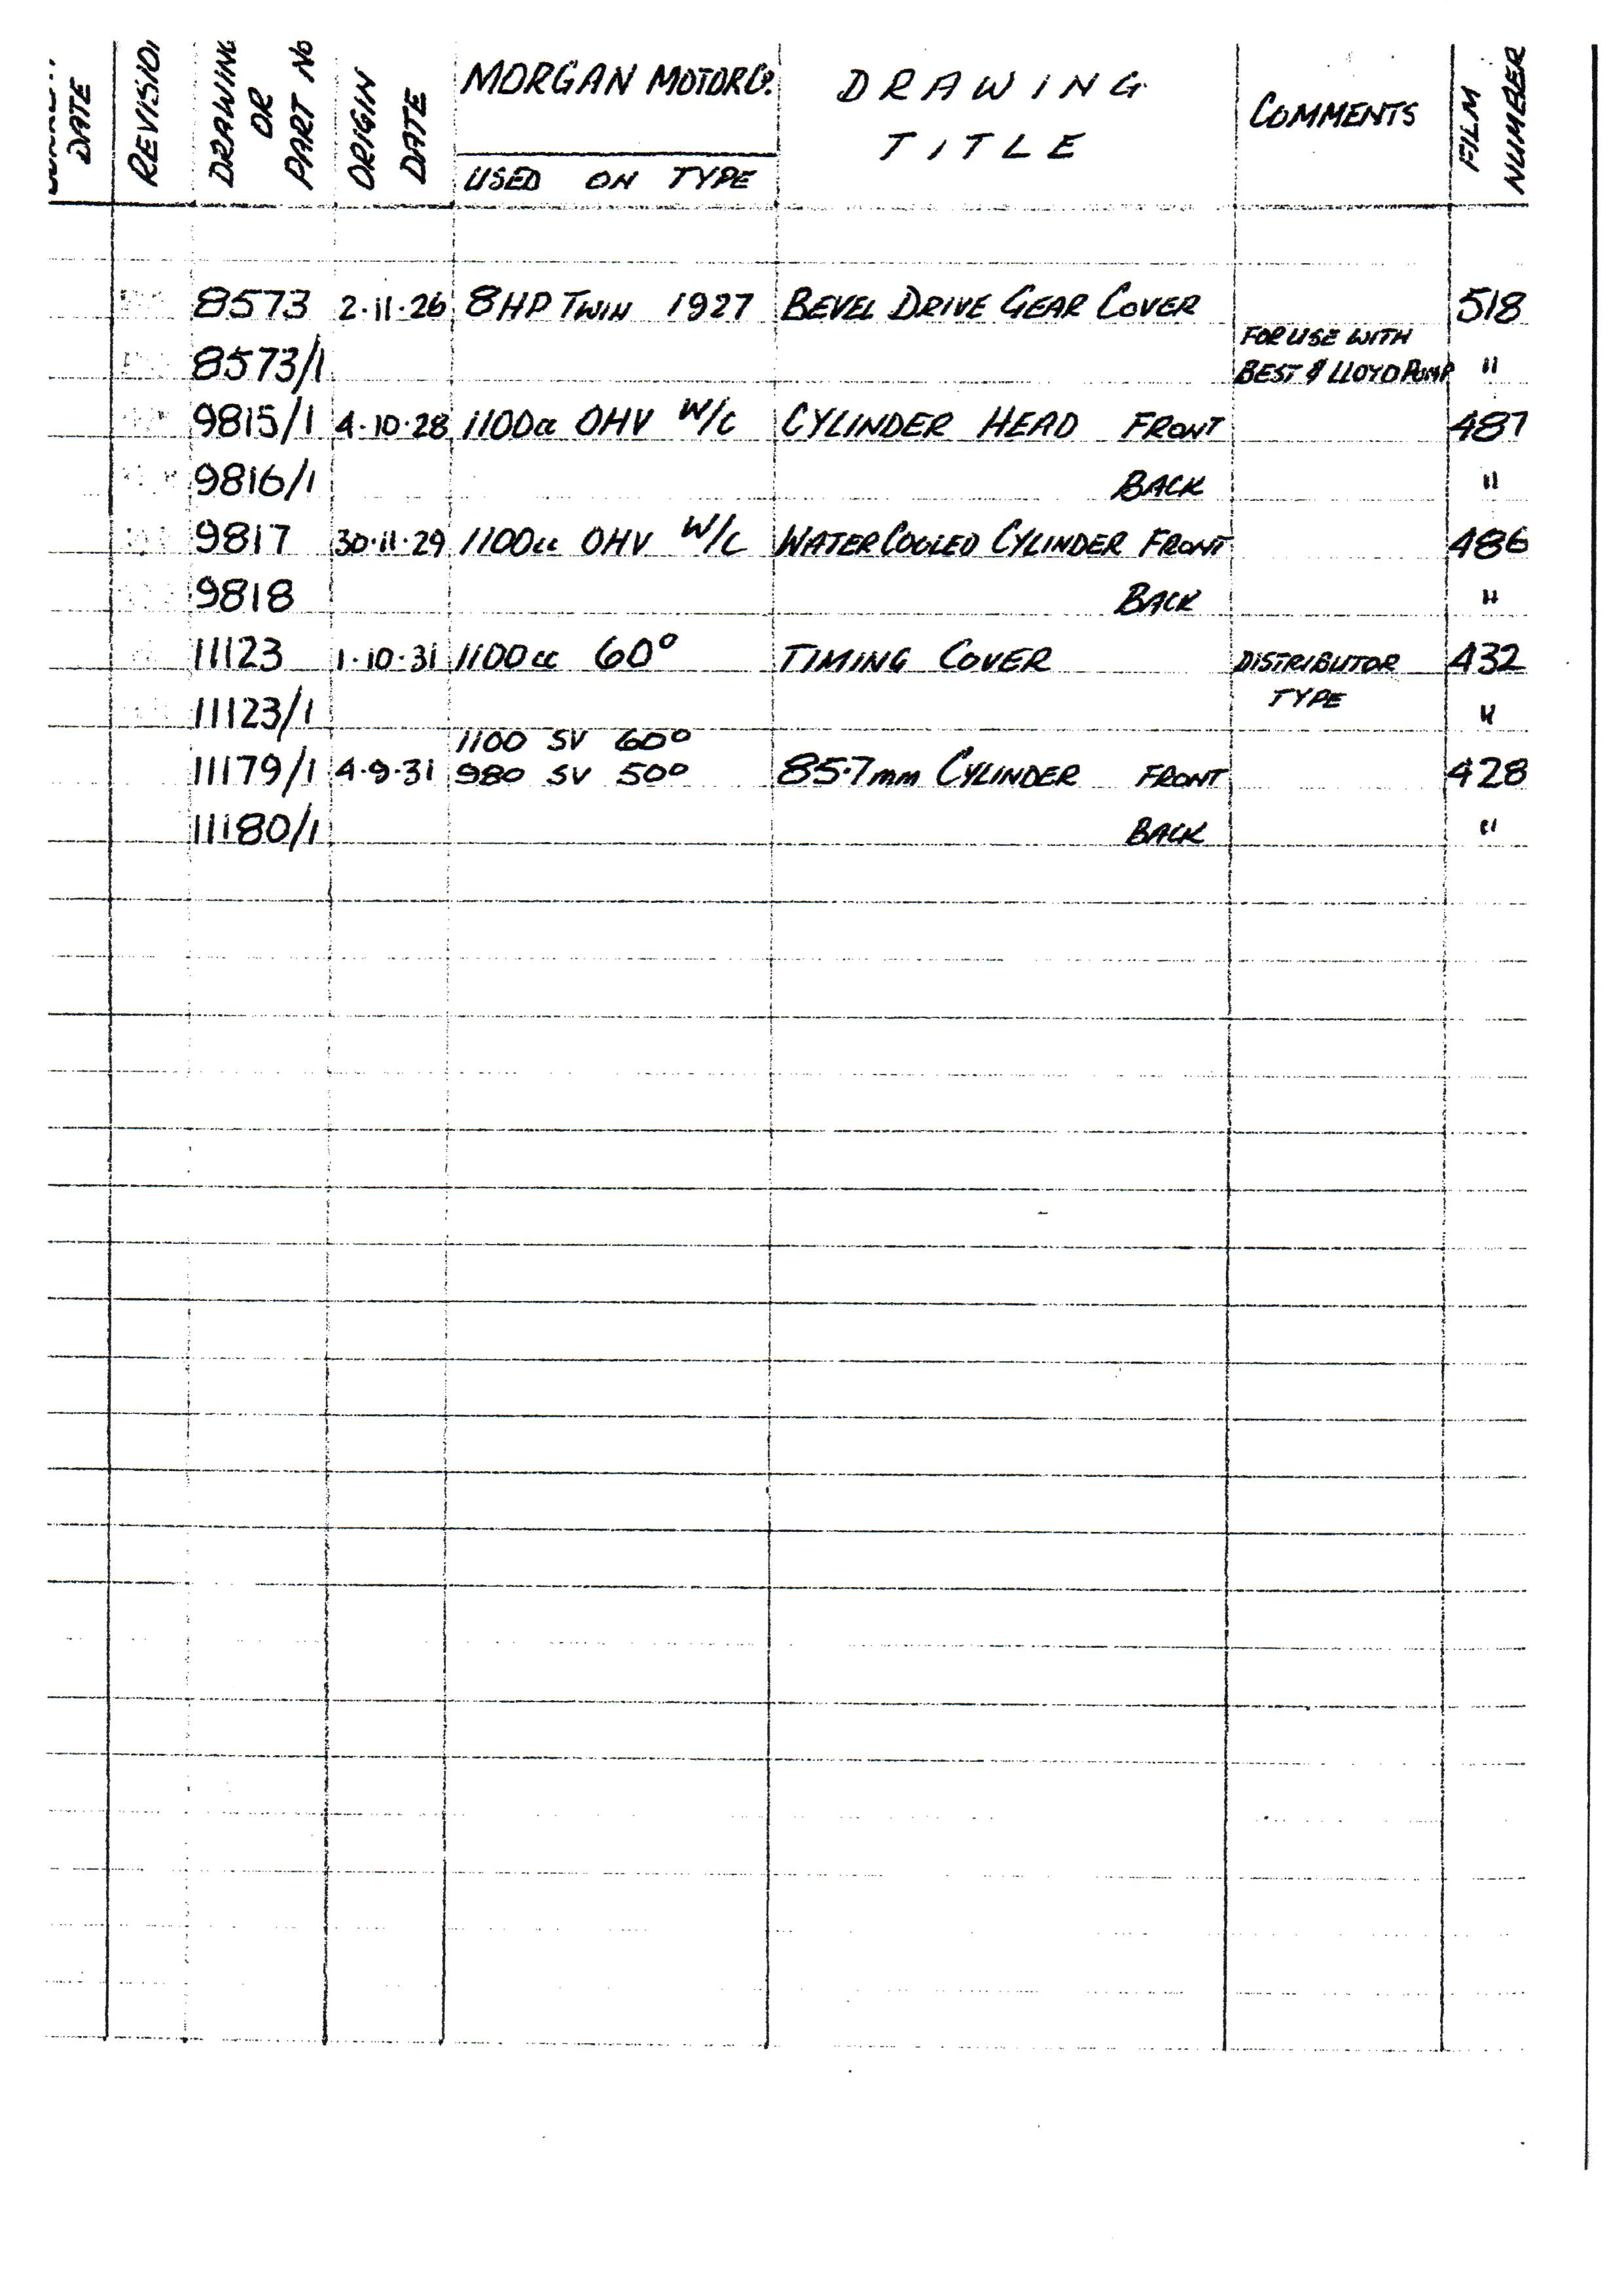 DATE
REVISION
DRAWING
OR
PART No
ORIGIN
DATE
MORGAN MOTOR CO.
USED ON TYPE
DRAWING
TITLE
COMMENTS
FILM
NUMBER
8573 2·11·26 8HP TWIN 1927 BEVEL DRIVE GEAR COVER 518
FOR USE WITH
8573/1 BEST & LLOYD PUMP "
9815/1 4·10·28 1100cc OHV W/C CYLINDER HEAD FRONT 487
9816/1 BACK "
9817 30·11·29 1100cc OHV W/C WATER COOLED CYLINDER FRONT 486
9818 BACK "
11123 1·10·31 1100cc 60° TIMING COVER DISTRIBUTOR 432
TYPE
11123/1 "
1100 SV 60°
11179/1 4·9·31 980 SV 50° 85·7mm CYLINDER FRONT 428
11180/1 BACK "